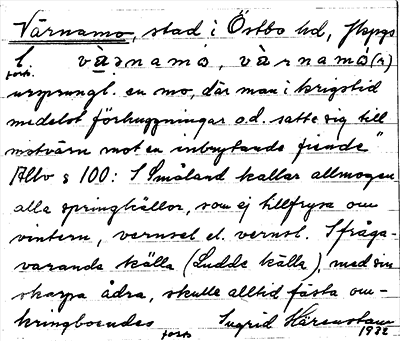 Värnamo, stad i Östbo hd, Jkpgs
l. värnamo, värnamo(r)
forts.
urspungl. en mo, där man i krigstid
medelst förhuggningar o.d. satte sig till
motvärn mot en inbrytande fiende"
Allvo s 100: I Småland kallar allmogen
alla springkällor, som ej tillfrysa om
vintern, vernsel el. vernsl. Ifråga-
varande källa (Ludde källa), med sin
skarpa ådra, skulle alltid fästa om-
kringboendes
forts Ingrid Härenstam
1932